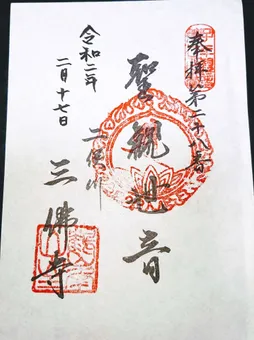 奉拝 第二十八番
聖観世音
二俣川
三佛寺
令和二年
二月十七日